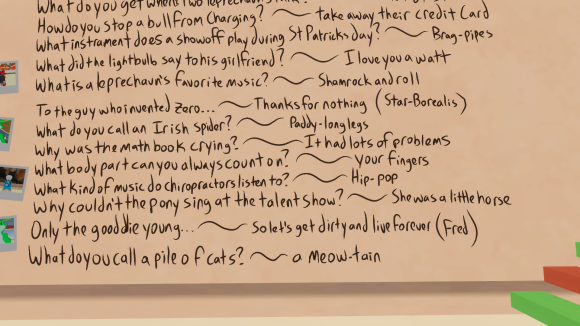 What do you get when two leprechauns
How do you stop a bull from Charging? ~ take away their credit Card
What instrament does a showoff play during St Patricks day? ~ Brag-pipes
What did the lightbulb say to his girlfriend? ~ I love you a watt
What is a leprechaun's favorite music? ~ Shamrock and roll
To the guy who invented zero... ~ Thanks for nothing (Star-Borealis)
What do you call an Irish spider? ~ Paddy-long legs
Why was the math book crying? ~ It had lots of problems
What body part can you always count on? ~ Your fingers
What kind of music do chiropractors listen to? ~ Hip-pop
Why couldn't the pony sing at the talent show? ~ She was a little horse
Only the good die young... ~ So let's get dirty and live forever (Fred)
What do you call a pile of cats? ~ a meow-tain